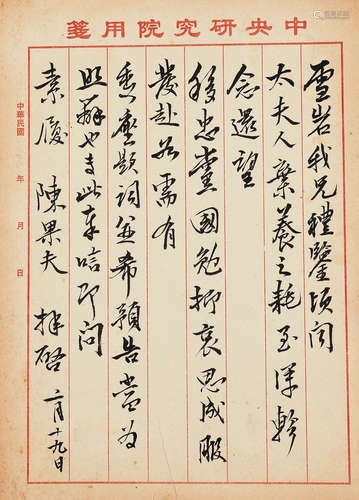 中央研究院用箋
雪岩我兄禮鑒頃聞
太夫人棄養之耗至深軫
念還望
移忠黨國勉抑哀思成服
發赴如需有
題詞並希預告當為
照辦也專此奉唁即問
素履 陳果夫 拜啟 月十九日
中華民國 年 月 日